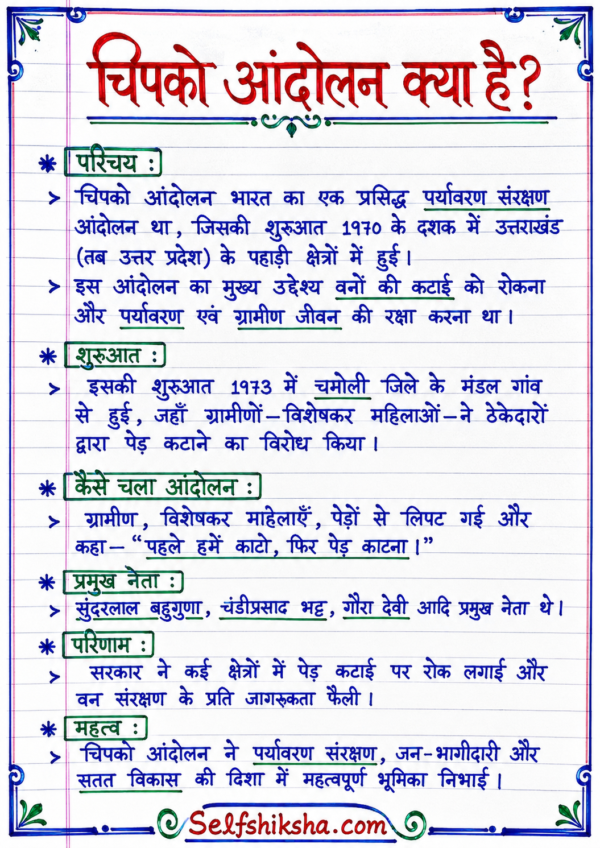 चिपको आंदोलन क्या है?
* परिचय :
> चिपको आंदोलन भारत का एक प्रसिद्ध पर्यावरण संरक्षण
आंदोलन था, जिसकी शुरुआत 1970 के दशक में उत्तराखंड
(तब उत्तर प्रदेश) के पहाड़ी क्षेत्रों में हुई।
> इस आंदोलन का मुख्य उद्देश्य वनों की कटाई को रोकना
और पर्यावरण एवं ग्रामीण जीवन की रक्षा करना था।
* शुरुआत :
> इसकी शुरुआत 1973 में चमोली जिले के मंडल गांव
से हुई, जहाँ ग्रामीणों–विशेषकर महिलाओं–ने ठेकेदारों
द्वारा पेड़ कटाने का विरोध किया।
* कैसे चला आंदोलन :
> ग्रामीण, विशेषकर माहेलाएँ, पेड़ों से लिपट गई और
कहा– “पहले हमें काटो, फिर पेड़ काटना।”
* प्रमुख नेता :
> सुंदरलाल बहुगुणा, चंडीप्रसाद भट्ट, गौरा देवी आदि प्रमुख नेता थे।
* परिणाम :
> सरकार ने कई क्षेत्रों में पेड़ कटाई पर रोक लगाई और
वन संरक्षण के प्रति जागरुकता फैली।
* महत्व :
> चिपको आंदोलन ने पर्यावरण संरक्षण, जन-भागीदारी और
सतत विकास की दिशा में महत्वपूर्ण भूमिका निभाई।
Selfshiksha.com